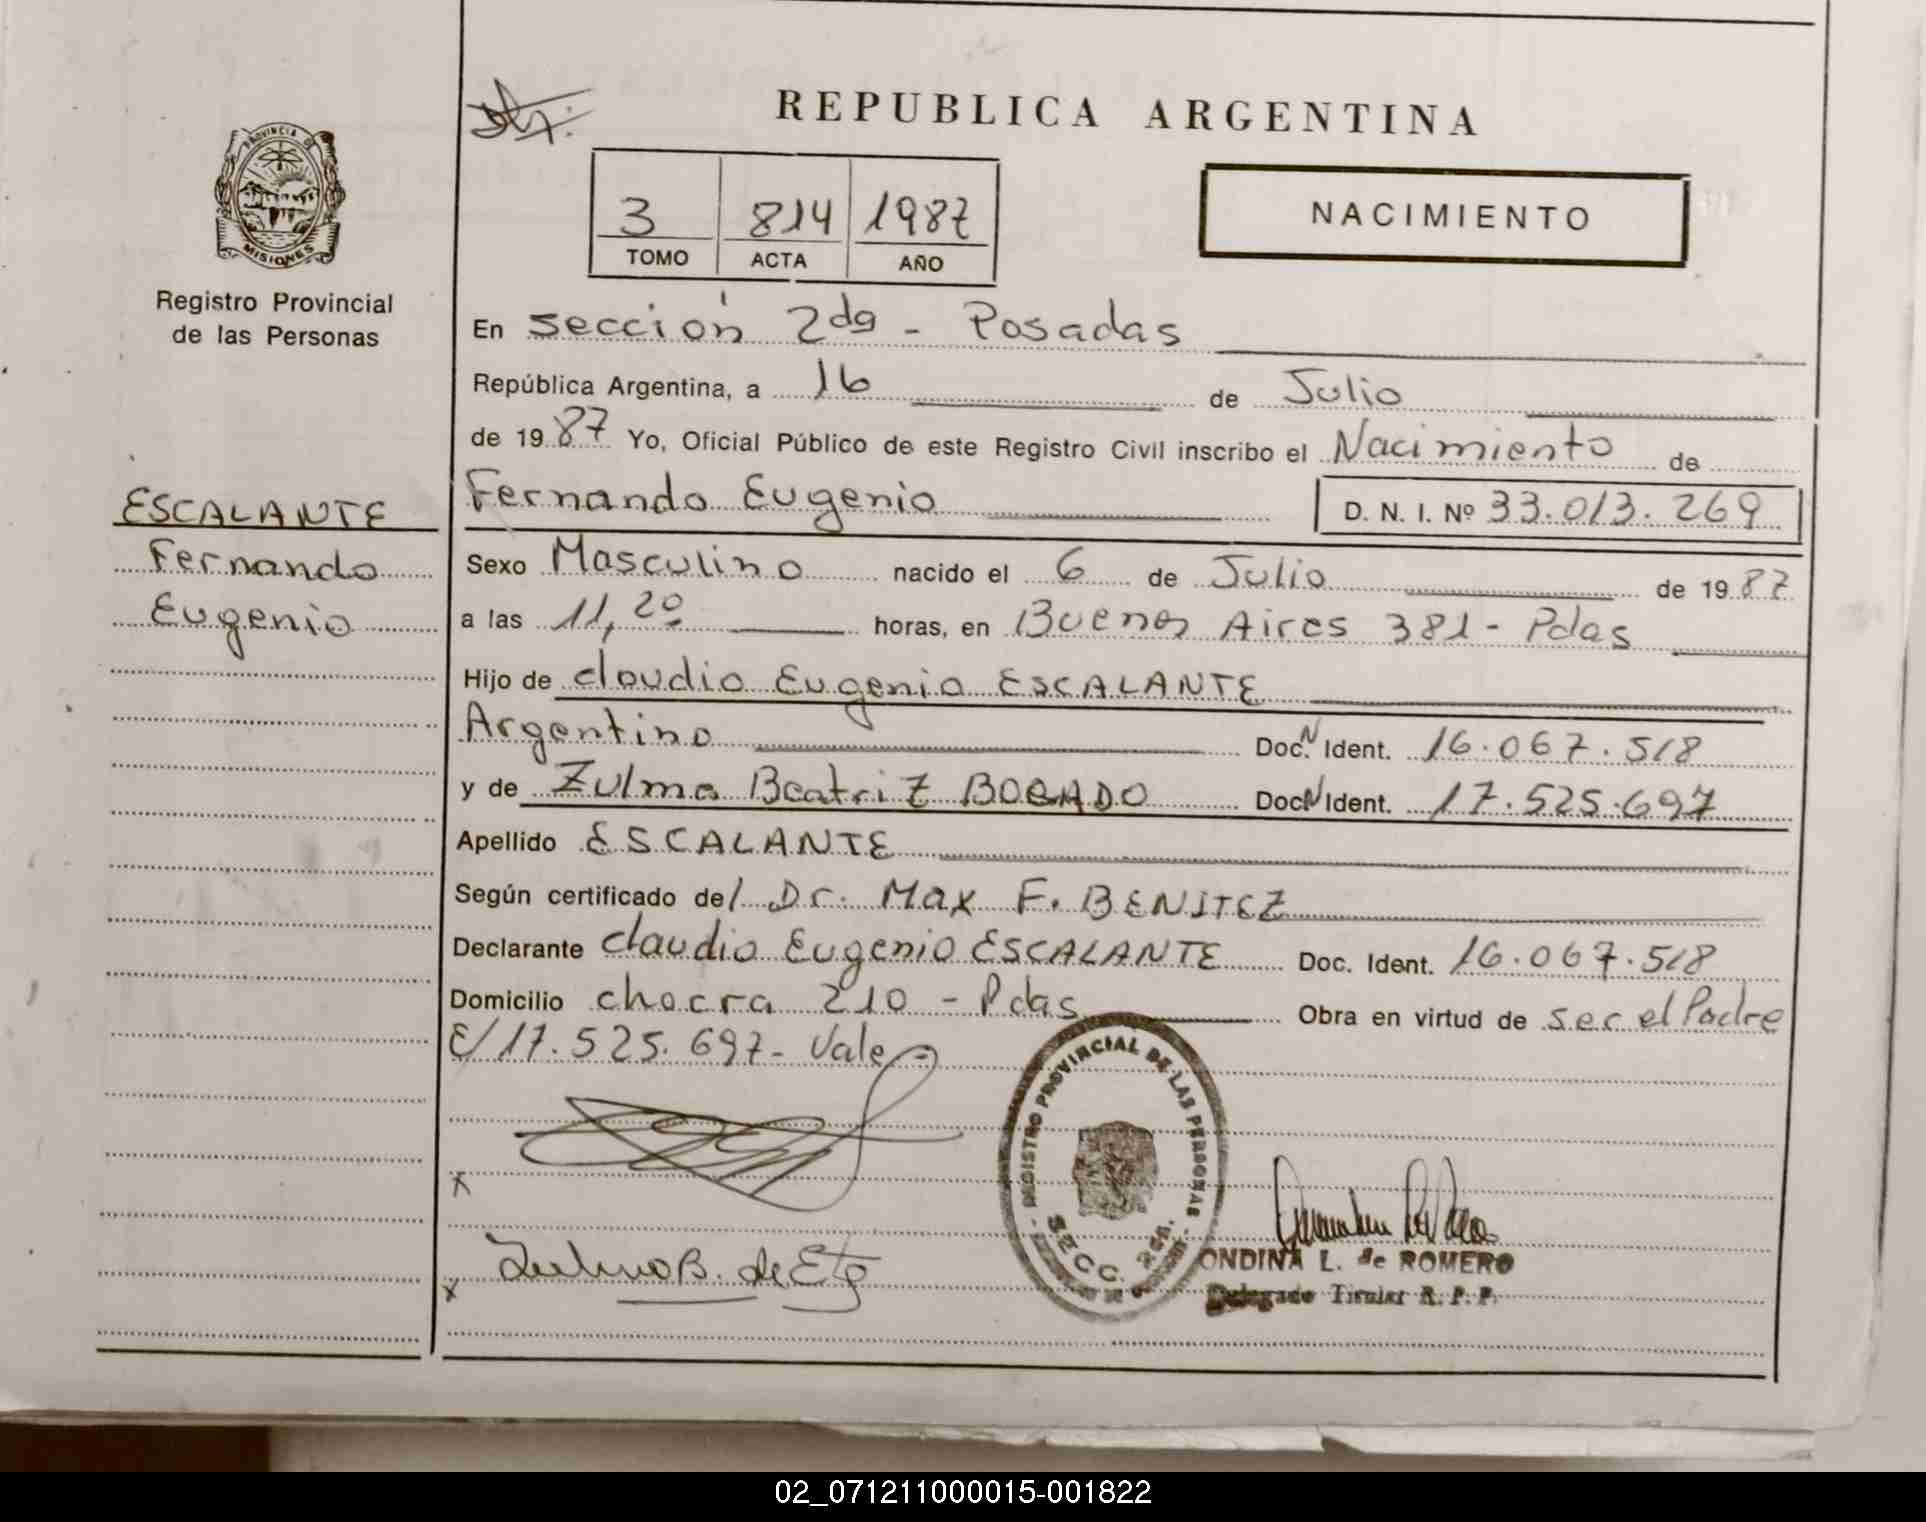 REPUBLICA ARGENTINA
PROVINCIA DE
MISIONES
Registro Provincial
de las Personas
3 814 1987
TOMO ACTA AÑO
NACIMIENTO
En sección 2da - Posadas
República Argentina, a 16 de Julio
de 1987 Yo, Oficial Público de este Registro Civil inscribo el Nacimiento de
ESCALANTE
Fernando
Eugenio
Fernando Eugenio D. N. I. Nº 33.013.269
Sexo Masculino nacido el 6 de Julio de 1987
a las 11,20 horas, en Buenos Aires 381 - Pdas
Hijo de Claudio Eugenio ESCALANTE
Argentino Doc. N Ident. 16.067.518
y de Zulma Beatriz BOBADO Doc. N Ident. 17.525.697
Apellido ESCALANTE
Según certificado del Dr. Max F. BENITEZ
Declarante Claudio Eugenio ESCALANTE Doc. Ident. 16.067.518
Domicilio chacra 210 - Pdas Obra en virtud de ser el Padre
E/17.525.697- Vale-
REGISTRO PROVINCIAL DE LAS PERSONAS
SECC. 2da.
x
x Zulma B. de Esc
ONDINA L. de ROMERO
Delegado Titular R. P. P.
02_071211000015-001822